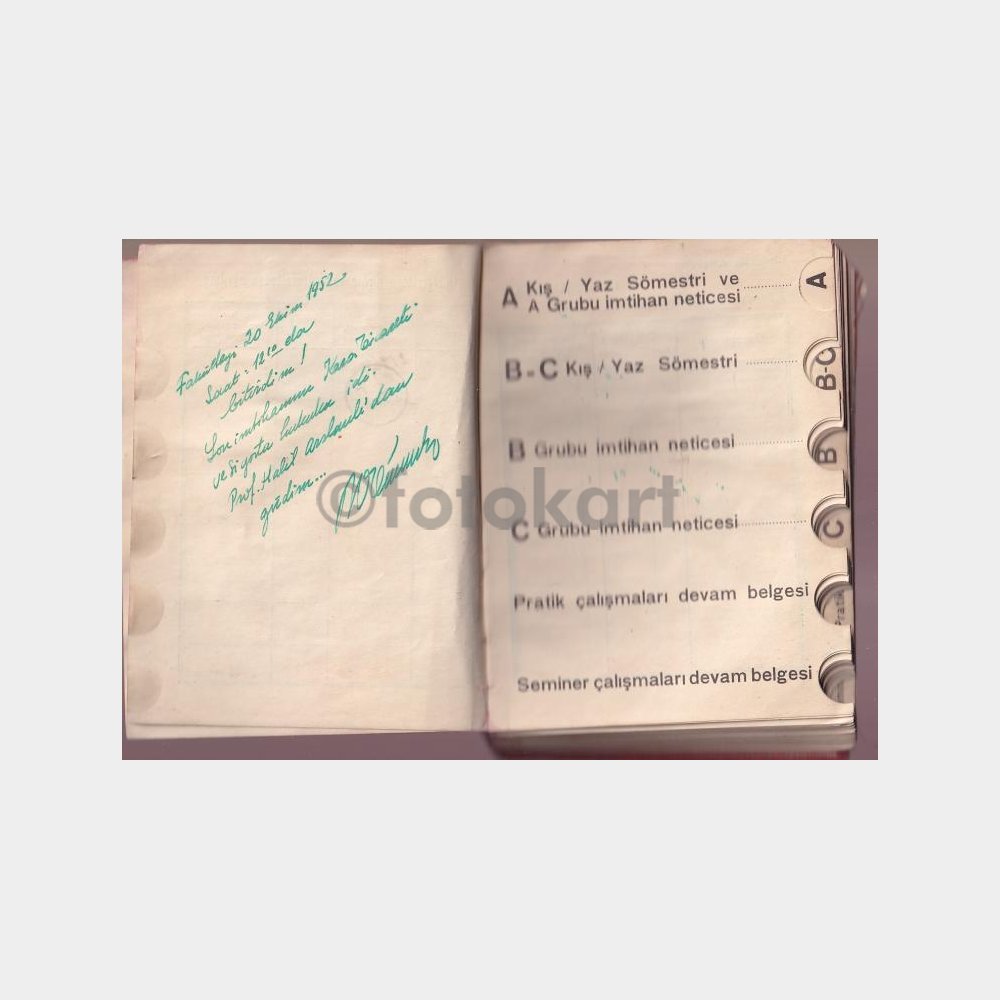 Fakülteyi 20 Ekim 1952
Saat: 12¹⁰ da
bitirdim!
Son imtihanım Kara Ticareti
ve Sigorta hukuku idi.
Prof. Halil Arslanlı'dan
girdim...
©fotokart
A Kış / Yaz Sömestri ve
A Grubu imtihan neticesi
A
B-C Kış / Yaz Sömestri
B-C
B Grubu imtihan neticesi
B
C Grubu imtihan neticesi
C
Pratik çalışmaları devam belgesi
Pratik
Seminer çalışmaları devam belgesi